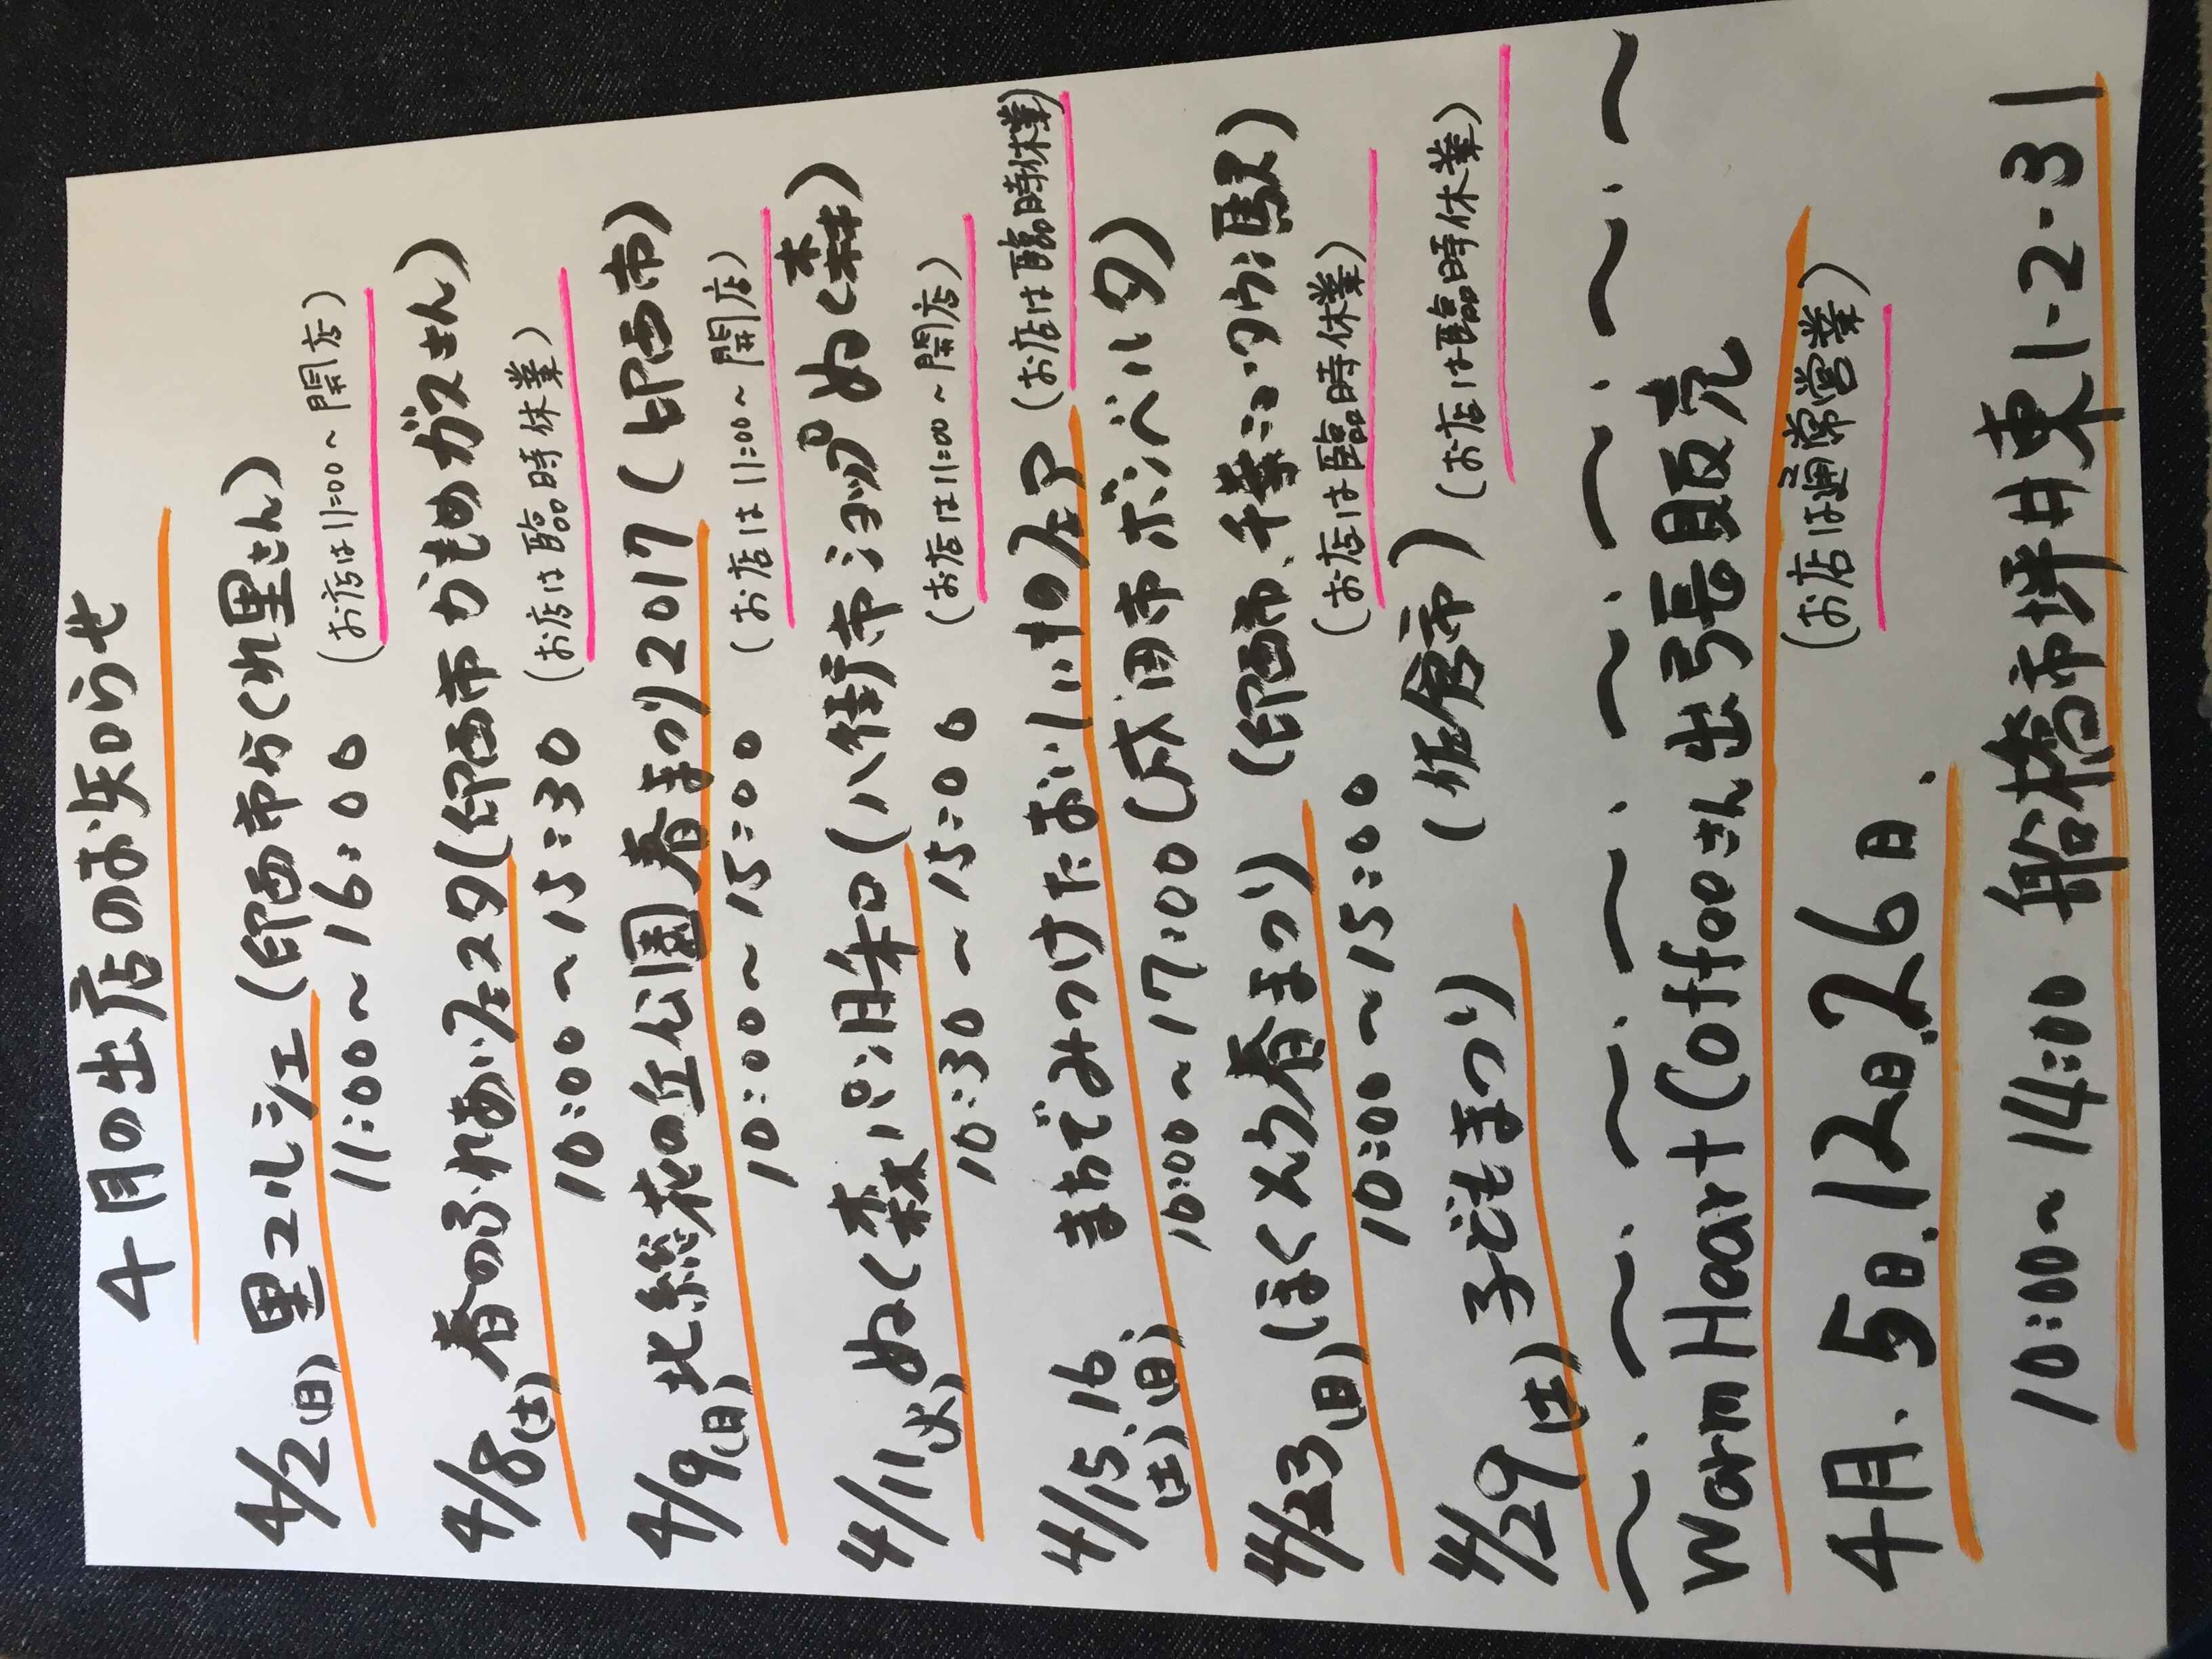 4月の出店のお知らせ
4/2(日) 里コルシェ(印西市 らくれ里さん)
11:00〜16:00 (お店は11:00〜開店)
4/8(土) 春のふれあいフェスタ(印西市 かもめガスさん)
10:00〜15:30 (お店は臨時休業)
4/9(日) 北総花の丘公園 春まつり2017 (印西市)
10:00〜15:00 (お店は11:00〜開店)
4/11(火) ぬく森、パン日和(八街市ショップぬく森)
10:30〜15:00 (お店は11:00〜開店)
4/15.16 まちでみつけたおいしいものフェア (お店は臨時休業)
(土)(日) 10:00〜17:00 (成田市ボンベルタ)
4/23(日) (ほくそう春まつり) (印西市、千葉ニュータウン駅)
10:00〜15:00 (お店は臨時休業)
4/29(土) 子どもまつり (佐倉市) (お店は臨時休業)
Warm Heart Coffeeさん出張販売
4月.5日.12日.26日. (お店は通常営業)
10:00〜14:00 船橋市坪井東1-2-31